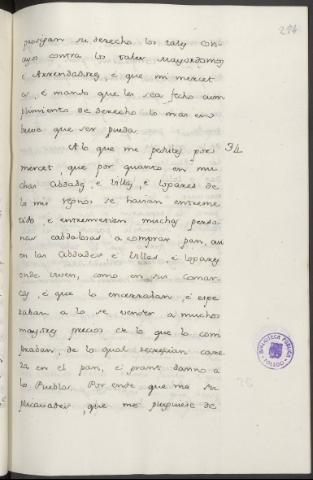 294
prosigan su derecho los tales con-
cejos contra los tales Mayordomos
e Arrendadores, e que mi mercet
es, e mando que les sea fecho cum-
plimiento de derecho lo más en
breve que ser pueda.
A lo que me pedistes por 34
mercet, que por quanto en mu-
chas cibdades, e villas, e logares de
los mis regnos se havian entreme-
tido, e entremetien muchas perso-
nas cabdalosas a comprar pan, asi
en las cibdades e villas e logares
onde viven, como en sus comar-
cas, e que lo encerraban, e espe-
raban a lo se vender a muchos
mayores precios de lo que lo com-
praban, de lo qual recrescian cares-
za en el pan, e grant danno a
los Pueblos. Por ende que me su-
plicavades, que me pluguiese de
BIBLIOTECA PUBLICA
TOLEDO